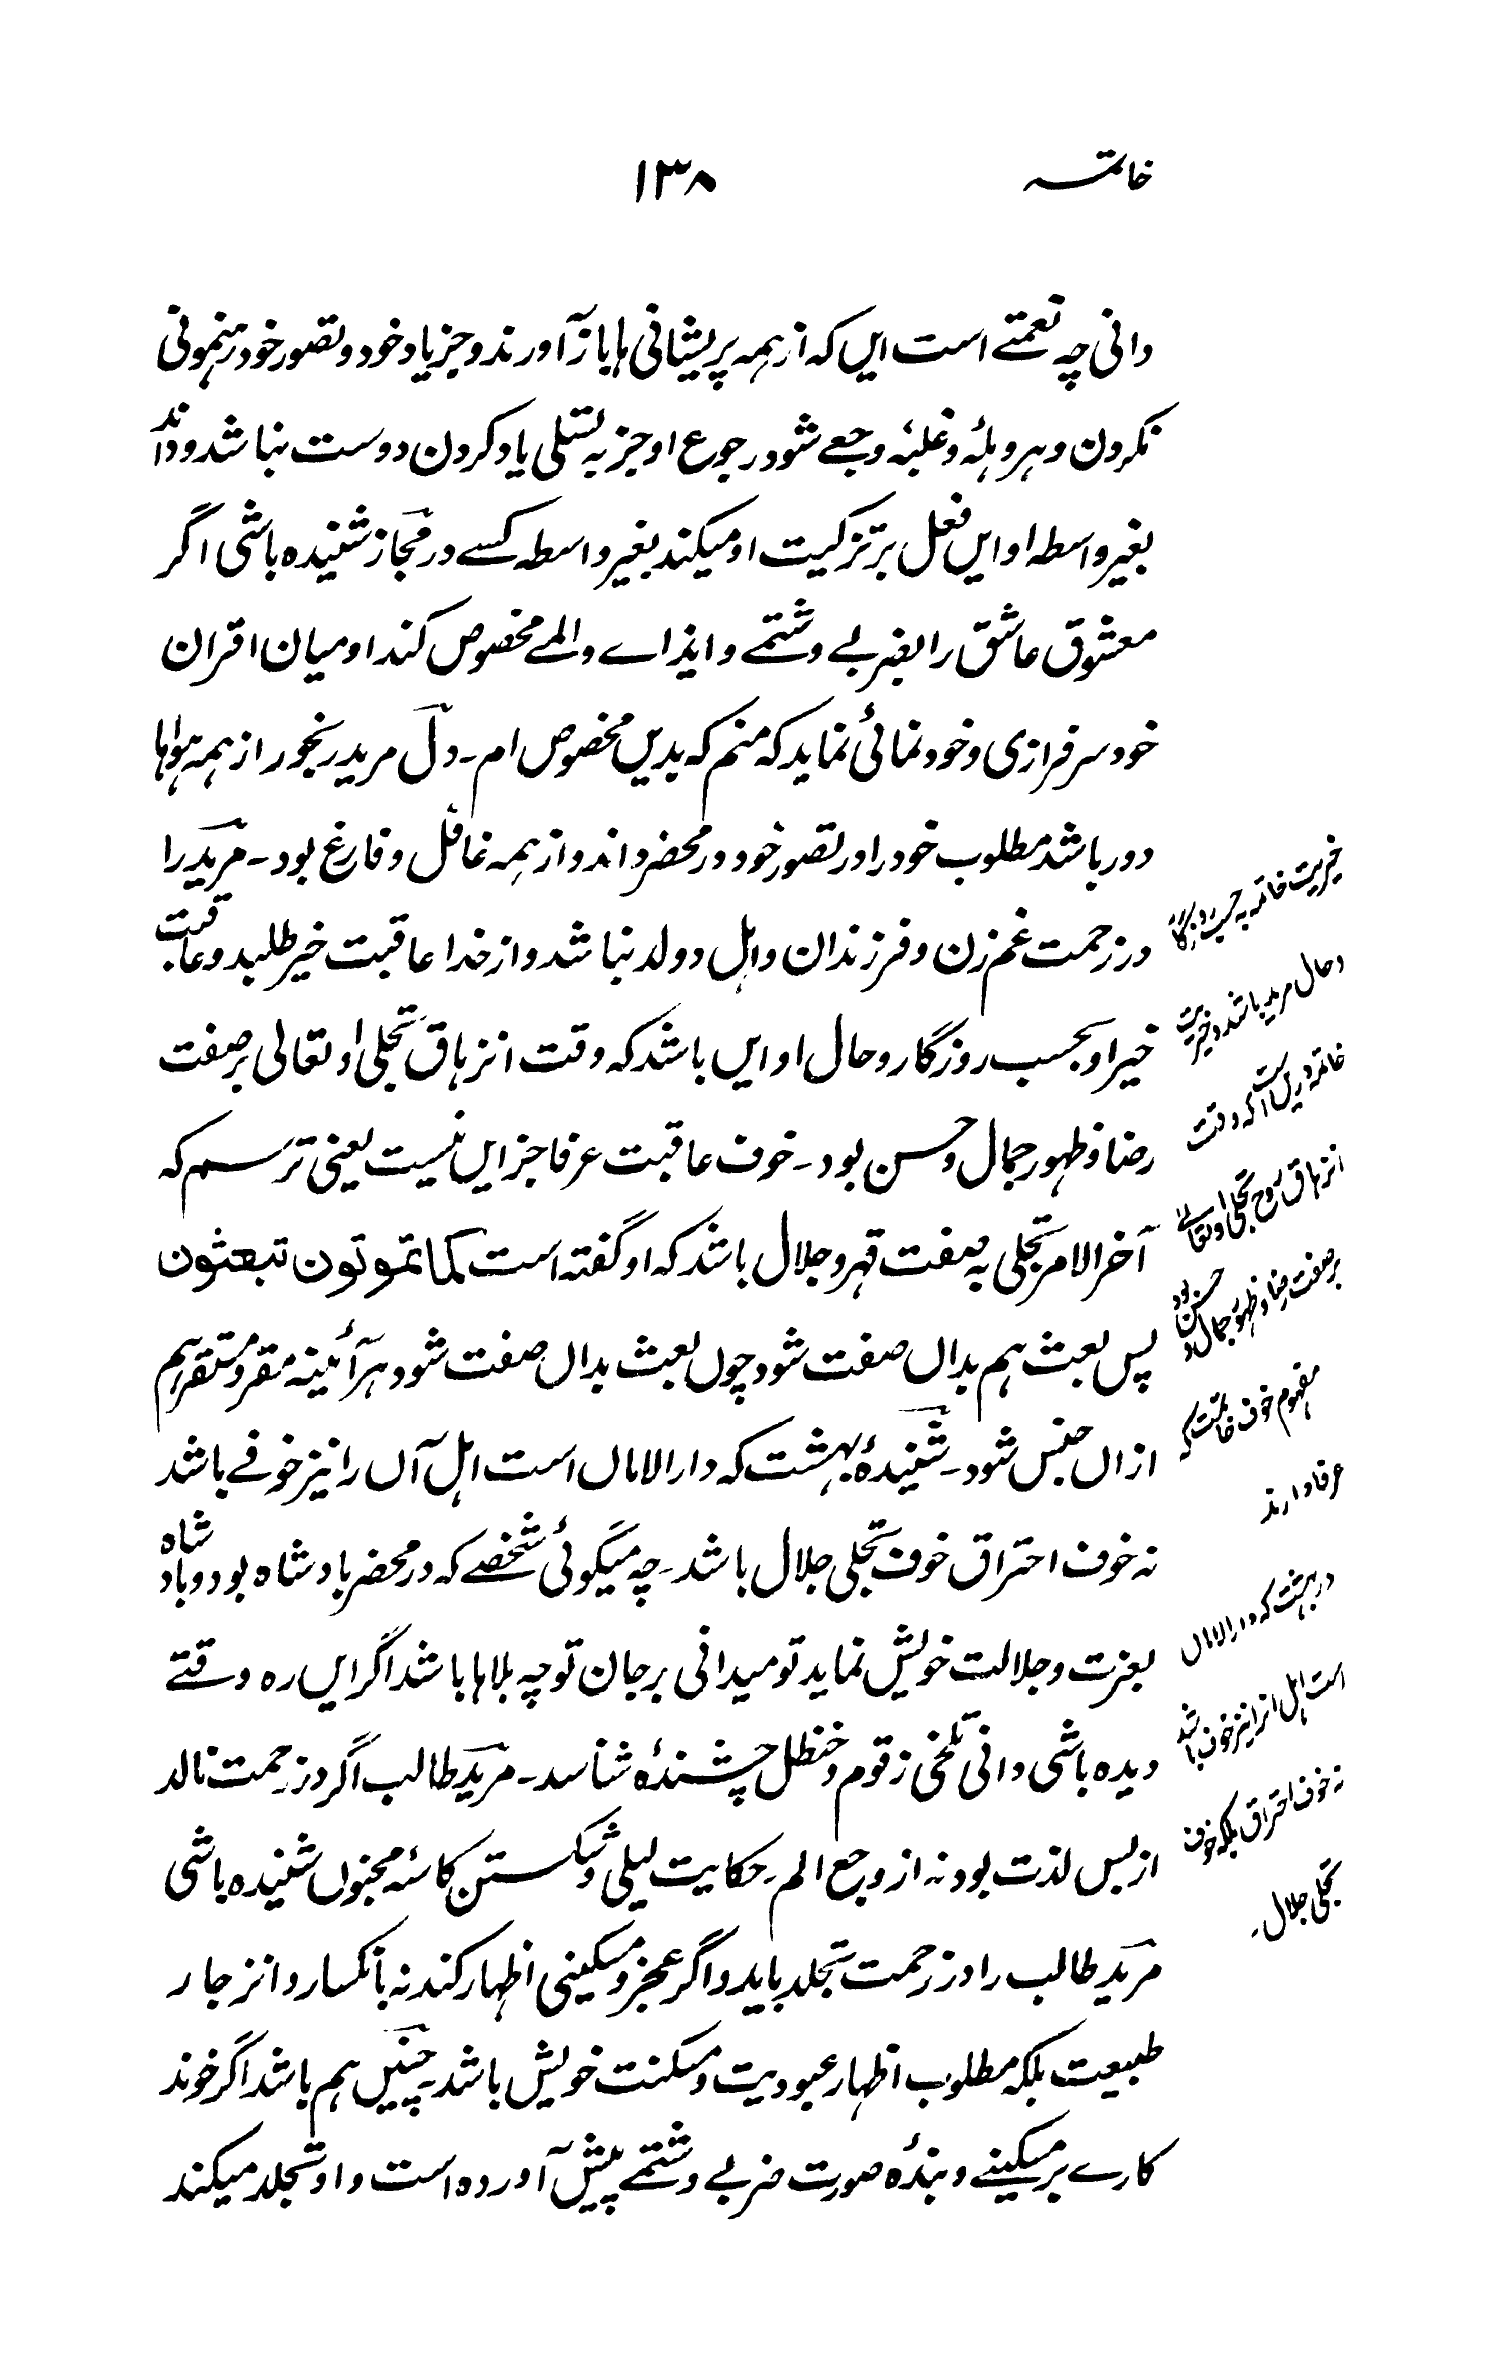 خاتمہ
۱۳۸
دانی چہ نعمتے است ایں کہ از ہمہ پریشانی ہا باز آورند و جز یاد خود و تصور خود رہنمونی
نکردن و ہر وہلۂ و غلبۂ وجعے شود رجوع او جز بہ تسلی یاد کردن دوست نباشد و داند
بغیر واسطہ او ایں فعل بر تزکیت او میکند بغیر واسطہ کسے در مجاز شنیدہ باشی اگر
معشوق عاشق را بضربے و شتمے و ایذاے و المے مخصوص کند او میان اقران
خود سرفرازی و خود نمائی نماید کہ منم کہ بدیں مخصوص ام۔ دل مرید رنجور از ہمہ ہواہا
دور باشد مطلوب خود را در تصور خود در محضر داند و از ہمہ غافل و فارغ بود۔ مرید را
در زحمت غم زن و فرزندان و اہل و ولد نباشد و از خدا عاقبت خیر طلبد و عاقبت
خیر او بحسب روزگار و حال او ایں باشد کہ وقت انزہاق تجلی او تعالی بر صفت
رضا و ظہور جمال و حسن بود۔ خوف عاقبت عرفا جز ایں نیست یعنی ترسم کہ
آخر الامر تجلی بہ صفت قہر و جلال باشد کہ او گفتہ است کما تموتون تبعثون
پس بعث ہم بداں صفت شود چوں بعث بداں صفت شود ہر آئینہ مقر و مستقر ہم
ازاں جنس شود۔ شنیدۂ بہشت کہ دار الاماں است اہل آں را نیز خوفے باشد
نہ خوف احتراق خوف تجلی جلال باشد۔ چہ میگوئی شخصے کہ در محضر بادشاہ بود و بادشاہ
بعزت و جلالت خویش نماید تو میدانی بر جان تو چہ بلاہا باشد اگر ایں رہ وقتے
دیدہ باشی دانی تلخی زقوم و حنظل چشندۂ شناسد۔ مرید طالب اگر در زحمت نالد
از بس لذت بود نہ از وجع الم۔ حکایت لیلی و شکستن کاسۂ مجنوں شنیدہ باشی
مرید طالب را در زحمت تجلد باید و اگر عجز و مسکینی اظہار کند نہ بانکسار و انزجار
طبیعت بلکہ مطلوب اظہار عبودیت و مسکنت خویش باشد۔ چنیں ہم باشد اگر خوند
کارے بر مسکینے و بندۂ صورت ضربے و شتمے پیش آوردہ است و او تجلد میکند
خیریت خاتمہ بہ حسب روزگار
و حال مرید باشد و خیریت
خاتمہ دریں است کہ وقت
انزہاق روح تجلی او تعالے
بر صفت رضا و ظہور جمال و حسن بود
مفہوم خوف خاتمت کہ
عرفا دارند
در بہشت کہ دار الاماں
است اہل آنرا نیز خوف باشد
نہ خوف احتراق بلکہ خوف
تجلی جلال۔